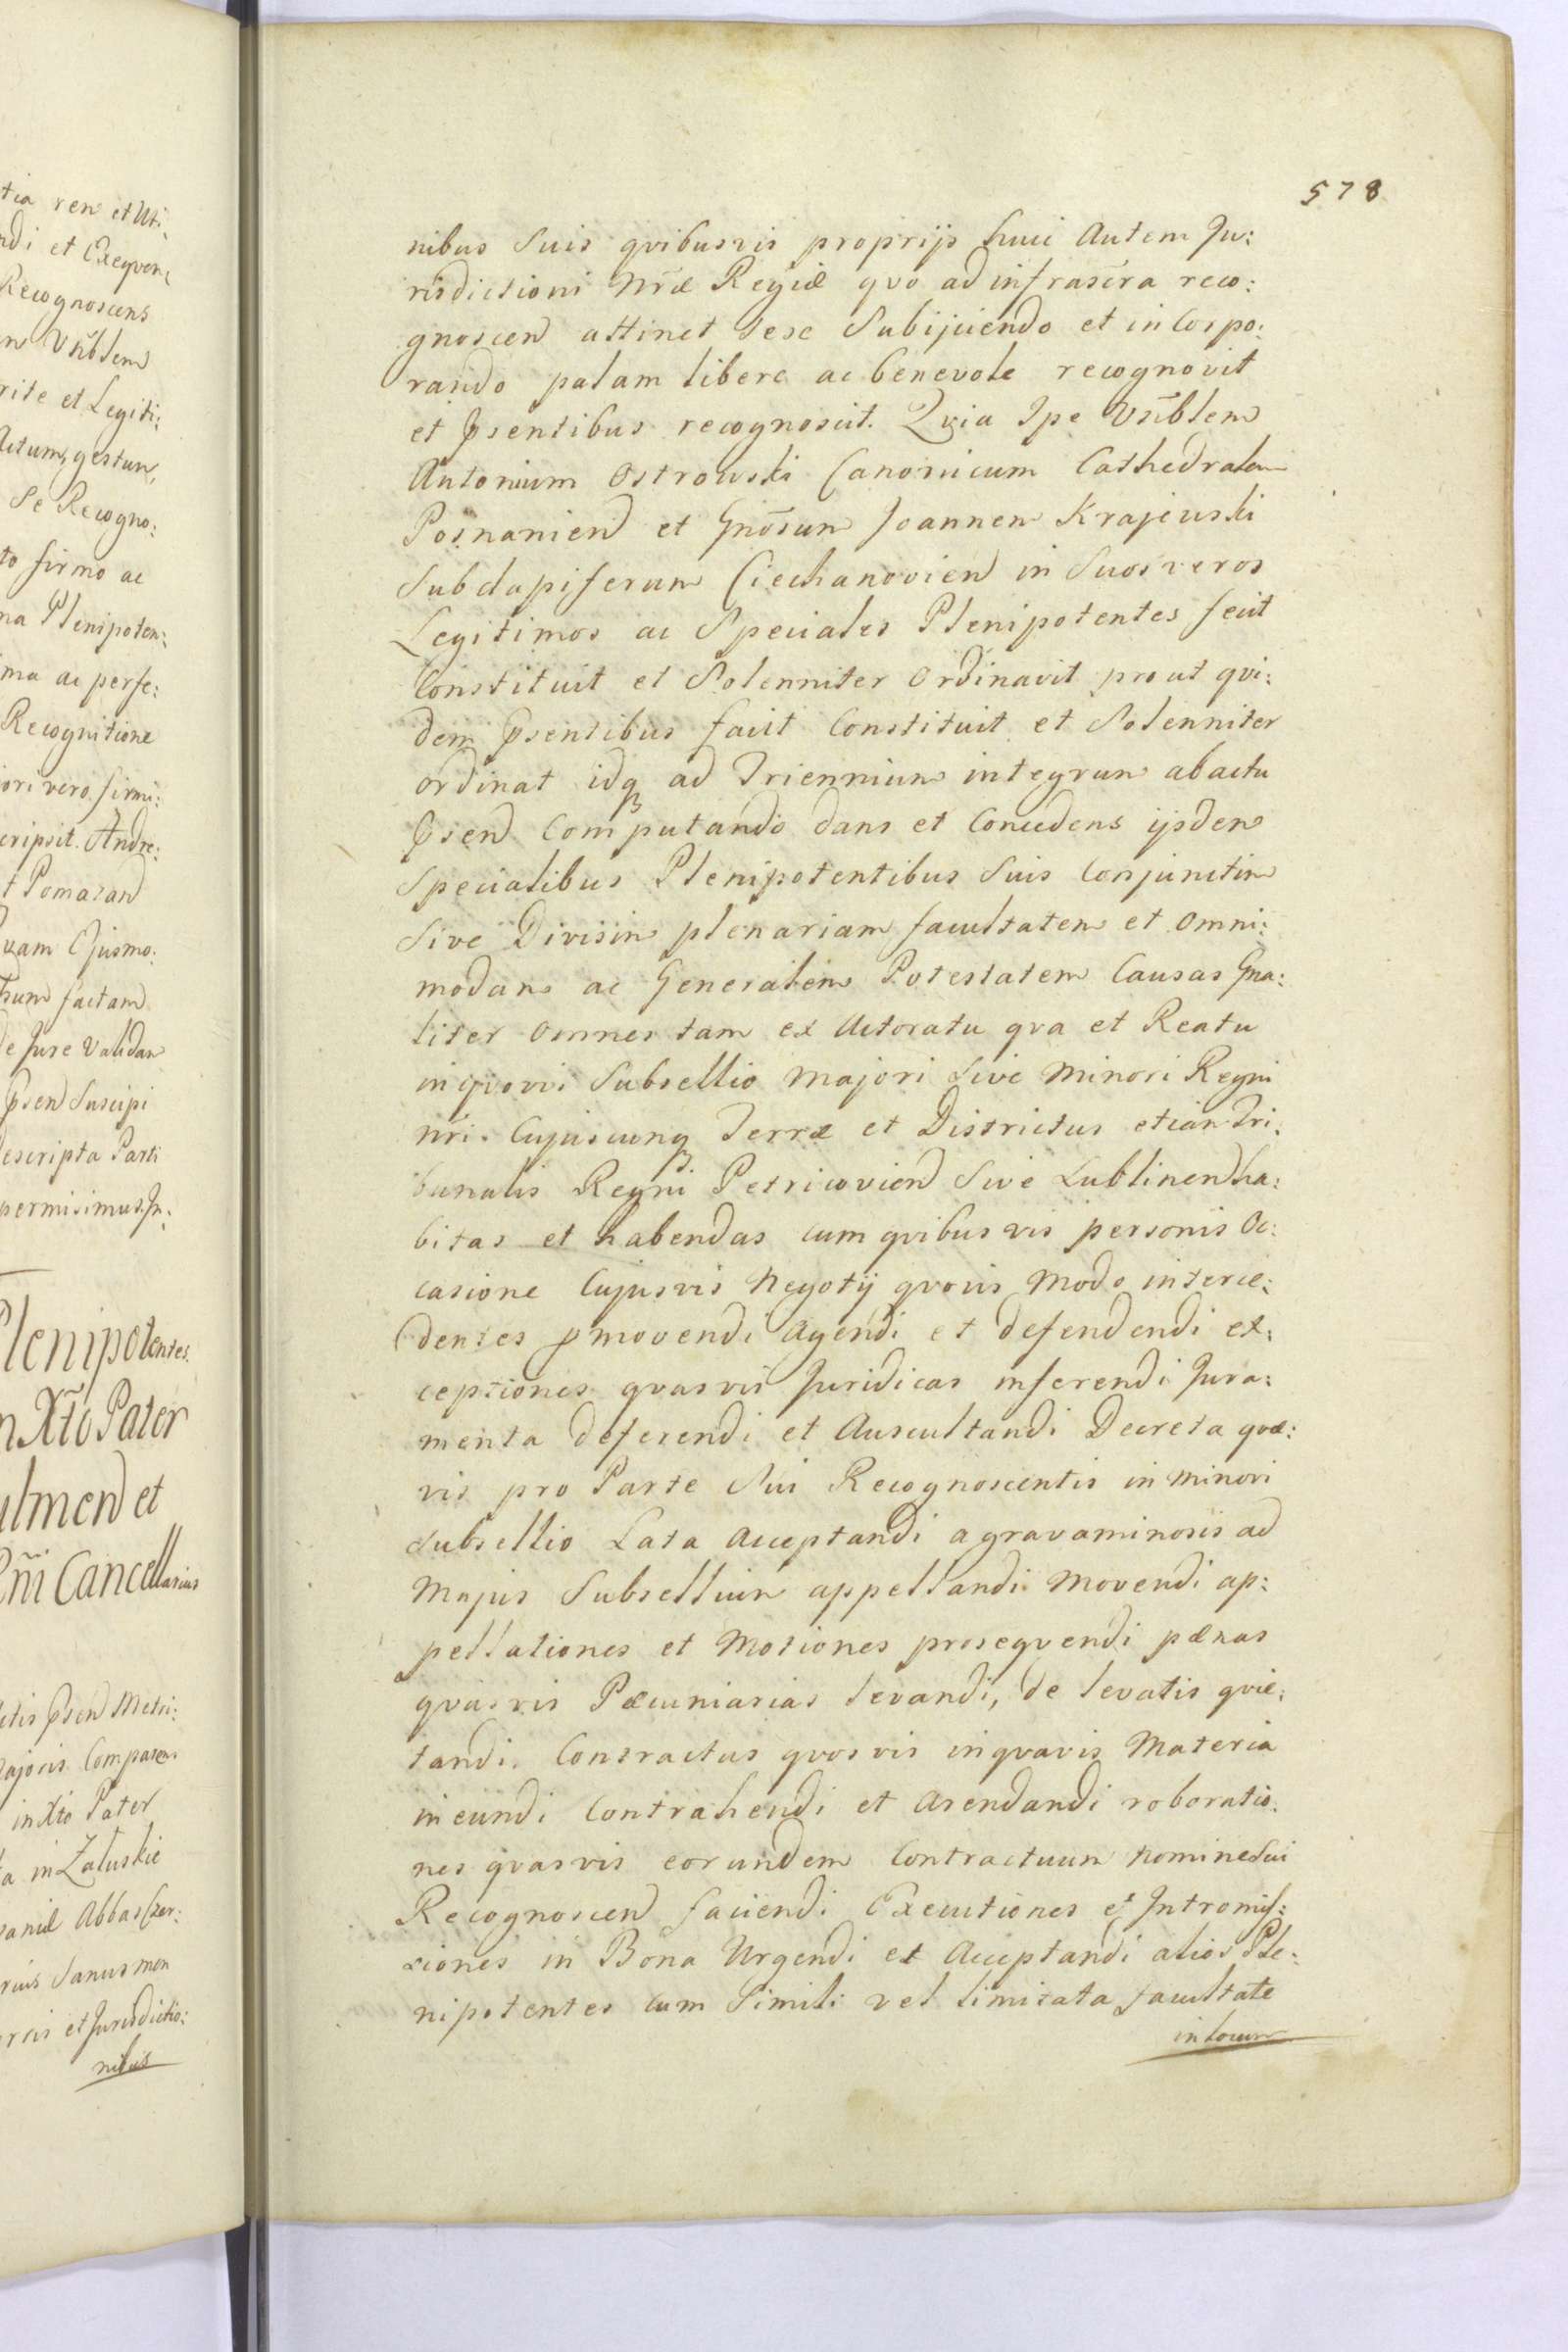 578
tia ren et Uti
ndi et Exeqven
Recognoscens
m Vrīblem
rite et Legiti:
Actum, gestum,
Se Recogno:
to firmo ac
na Plenipoten:
ma ac perfe:
Recognitione
iori vero firmi:
cripsit. Andre:
t Pomaran
Qvam Ejusmo:
factam
de Jure Validam
Psen Suscipi
escripta Parti
permisimus. In:
Plenipotentes.
n Xt̄o Pater
ulmen et
Rn̄i Cancellarius
ctis psen Metri:
Majoris Comparens
in Xto Pater
ta in Załuskie
Abbas Czer:
Sanus men
et Jurisdictio:
nibus
nibus Suis qvibusvis proprijs huic Autem Ju:
risdictioni Nr̄æ Regiæ qvo ad infrascr̄a reco:
gnoscen attinet sese Subijciendo et incorpo:
rando palam libere ac benevole recognovit
et psentibus recognoscit. Qvia Ipe Vrīblem
Antonium Ostrowski Canonicum Cathedralem
Posnanien et Gnōsum Joannem Krajewski
Subdapiferum Ciechanovien in Suos veros
Legitimos ac Speciales Plenipotentes fecit
Constituit et Solenniter Ordinavit prout qvi:
dem psentibus facit Constituit et Solenniter
ordinat idq ad Triennium integrum ab actu
psen Computando dans et Concedens ijsdem
Specialibus Plenipotentibus Suis Conjunctim
Sive Divisim plenariam facultatem et Omni:
modam ac Generalem Potestatem Causas Gna:
liter omnes tam ex Actoratu qva et Reatu
in qvovis Subsellio Majori sive Minori Regni
nri. Cujuscunq Terræ et Districtus etiam Tri:
bunalis Regni Petricovien Sive Lublinen ha:
bitas et habendas cum qvibusvis personis Oc:
casione Cujusvis Negotij qvovis Modo interce:
dentes pmovendi Agendi et defendendi ex:
ceptiones qvasvis Juridicas inferendi Jura:
menta deferendi et Auscultandi Decreta qvæ:
vis pro Parte Sui Recognoscentis in minori
subsellio Lata Acceptandi a gravaminosis ad
Majus Subsellium appellandi Movendi ap:
pellationes et Motiones proseqvendi pænas
qvasvis Pæcuniarias levandi, de levatis qvie:
tandi. Contractus qvosvis in qvavis Materia
ineundi Contrahendi et Arendandi roboratio:
nes qvasvis eorundem Contractuum Nomine Sui
Recognoscen faciendi Executiones et Intromis:
siones in Bona Urgendi et Acceptandi alios Ple:
nipotentes cum Simili vel limitata facultate
in locum